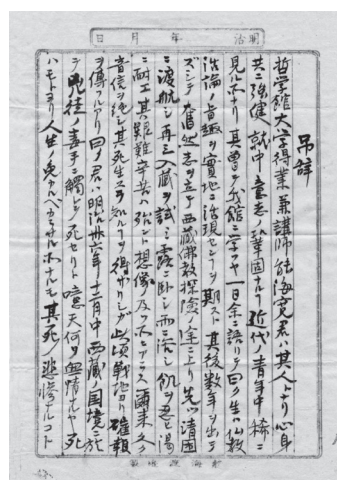 明治　年　月　日
弔辞
哲学館大学得業兼講師能海寛君ハ其人トナリ心身
共ニ強健就中意志ノ鞏固ナルヿ近代ノ青年中稀ニ
見ル所ナリ其曽テ我館ニ学フヤ一日余ニ語リテ曰ク生ハ仏教
活論ノ旨趣ヲ実地ニ活現センヿヲ期スト其後数年ヲ出テ
ズシテ奮然志ヲ立テ西蔵仏教探険ノ途ニ上リ先ツ清国
ニ渡航シ再三入蔵ヲ試ミ露ニ臥シ雨ニ浴シ飢ヲ忍ヒ渇
ニ耐エ其艱難辛苦ハ殆ント想像ノ及フ所ニアラス爾来久ク
音信ヲ絶シ其死生スラ知ルヿヲ得サリシガ此頃戦地ヨリ確報
ヲ傳フルアリ曰ク君ハ明治卅六年十二月中西蔵ノ国境ニ於
テ兇徒ノ毒手ニ觸レテ死セリト嗚天何ソ無情ナルヤ死
ハモトヨリ人生ノ免ルベカラサル所ナルモ其死ノ悲惨ナルコト